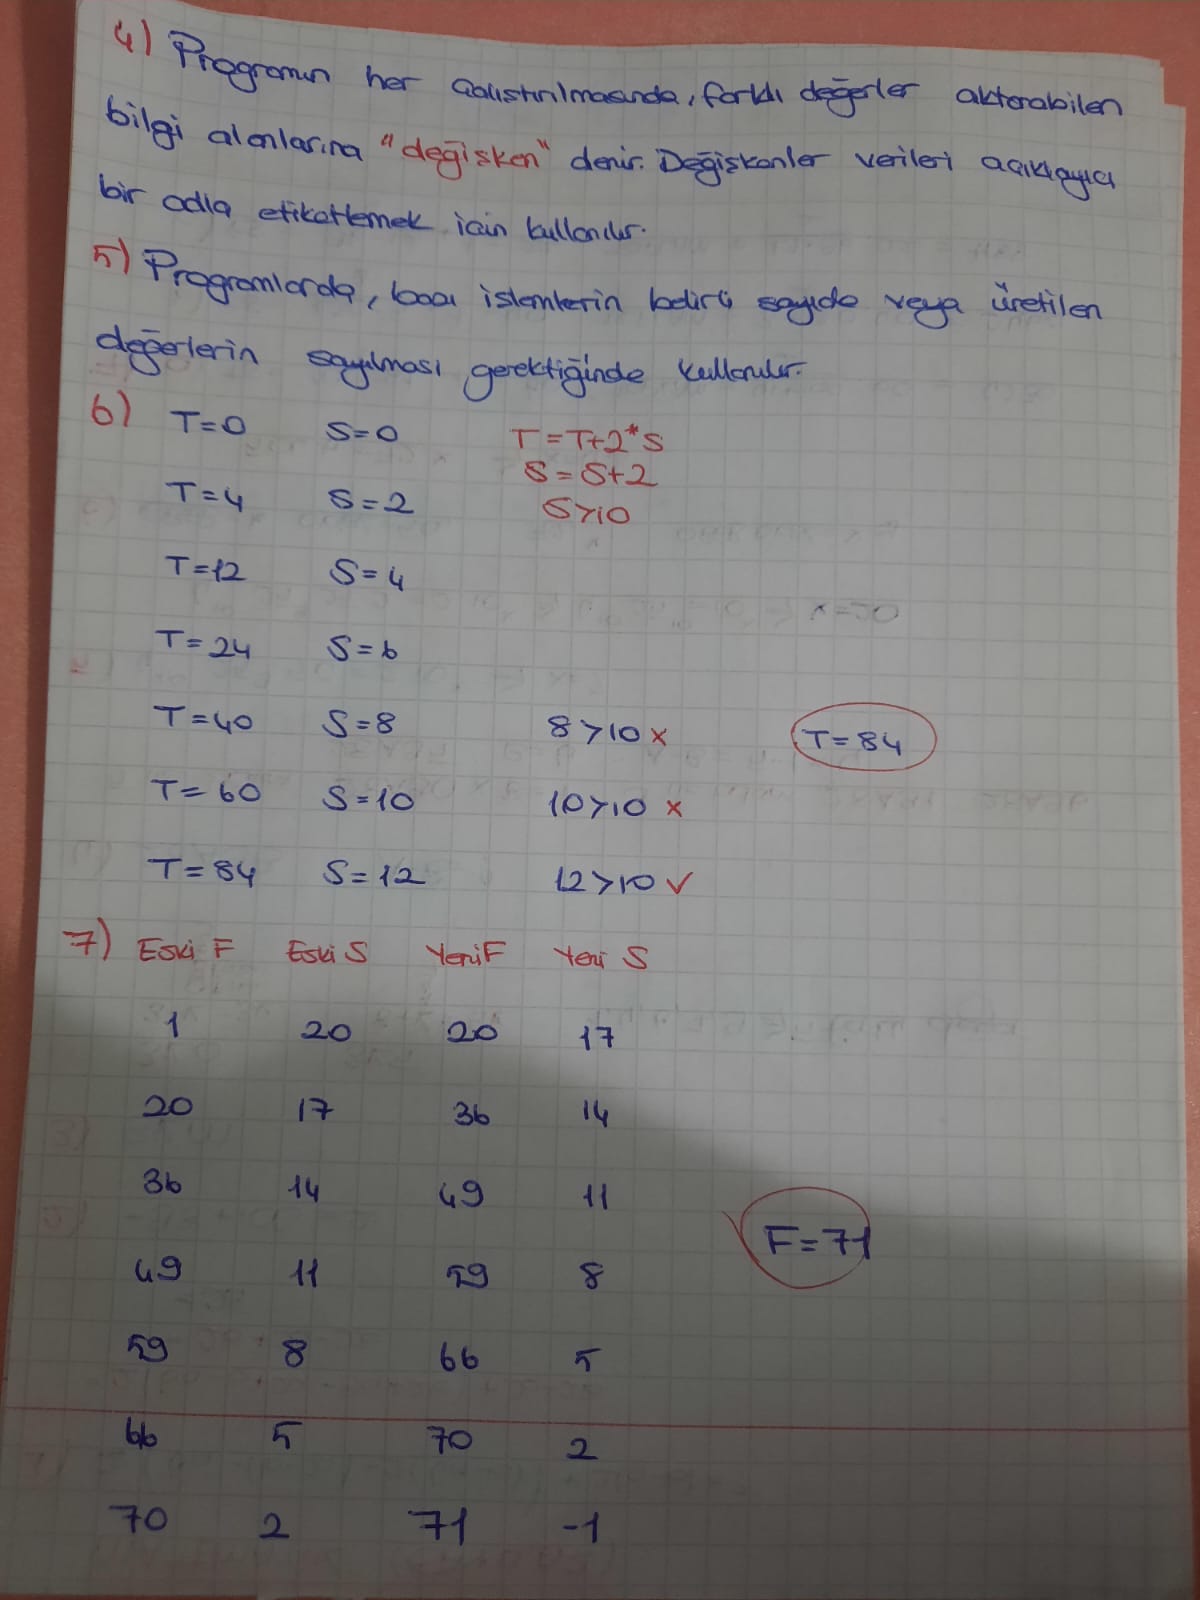 4) Programın her çalıştırılmasında, farklı değerler aktarabilen
bilgi alanlarına "değişken" denir. Değişkenler verileri açıklayıcı
bir adla etiketlemek için kullanılır.
5) Programlarda, bazı işlemlerin belirli sayıda veya üretilen
değerlerin sayılması gerektiğinde kullanılır.
6) T=0 S=0 T=T+2*S
S=S+2
T=4 S=2 S>10
T=12 S=4
T=24 S=6
T=40 S=8 8>10 x T=84
T=60 S=10 10>10 x
T=84 S=12 12>10 ✓
7) Eski F Eski S Yeni F Yeni S
1 20 20 17
20 17 36 14
36 14 49 11
F=71
49 11 59 8
59 8 66 5
66 5 70 2
70 2 71 -1